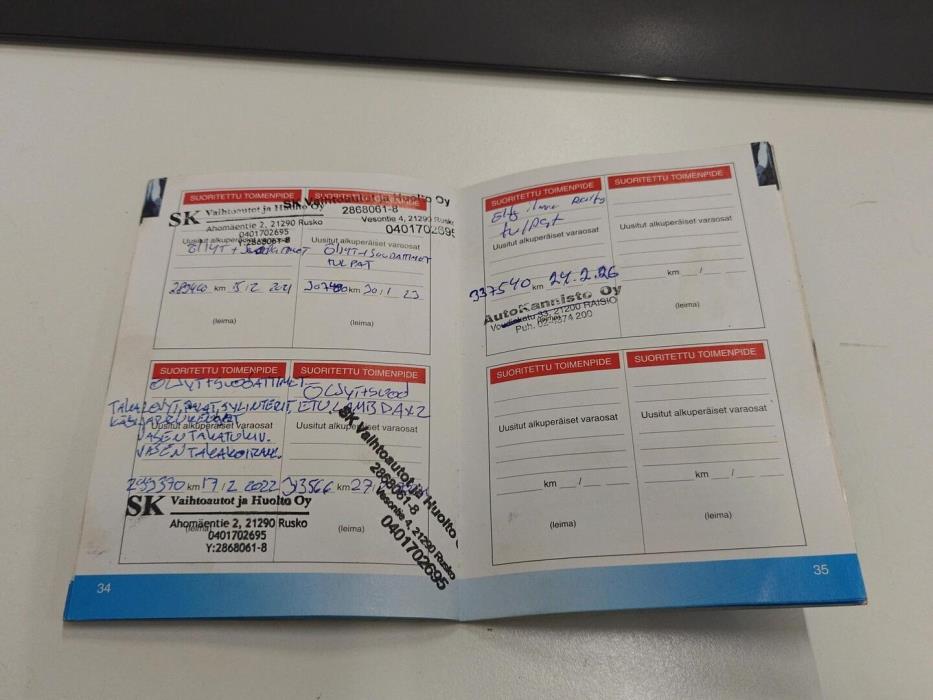 SUORITETTU TOIMENPIDE
SK Vaihtoautot ja Huolto Oy
Ahomäentie 2, 21290 Rusko
0401702695
Y:2868061-8
Uusitut alkuperäiset varaosat
ÖLJYT + SUODATTIMET
289460 km 15/2 2021
(leima)
SUORITETTU TOIMENPIDE
SK Vaihtoautot ja Huolto Oy
2868061-8
Vesontie 4, 21290 Rusko
040170269
Uusitut alkuperäiset varaosat
ÖLJYT + SUODATTIMET
TULPAT
km 20/1 23
(leima)
SUORITETTU TOIMENPIDE
ÖLJYT+SUODATTIMET
TAKALEVYT, PALAT, SYLINTERIT,
Uusitut alkuperäiset varaosat
VASEN TAKATUKIV.
VASEN
299390 km 17/2 2022
SK Vaihtoautot ja Huolto Oy
Ahomäentie 2, 21290 Rusko
(leima)
0401702695
Y:2868061-8
SUORITETTU TOIMENPIDE
ÖLJYT+SUOD
ETU LAMBDA X2
Uusitut alkuperäiset varaosat
313566 km 27/
SK Vaihtoautot ja Huolto
2868061-8
Vesontie 4, 21290 Rusko
0401702695
34
SUORITETTU TOIMENPIDE
Öljy
tulpat
Uusitut alkuperäiset varaosat
337540 km 24.2.26
AutoKannisto Oy
Voudinkatu 33, 21200 RAISIO
Puh. 02-4374 200
(leima)
SUORITETTU TOIMENPIDE
Uusitut alkuperäiset varaosat
km / /
(leima)
SUORITETTU TOIMENPIDE
Uusitut alkuperäiset varaosat
km / /
(leima)
SUORITETTU TOIMENPIDE
Uusitut alkuperäiset varaosat
km / /
(leima)
35